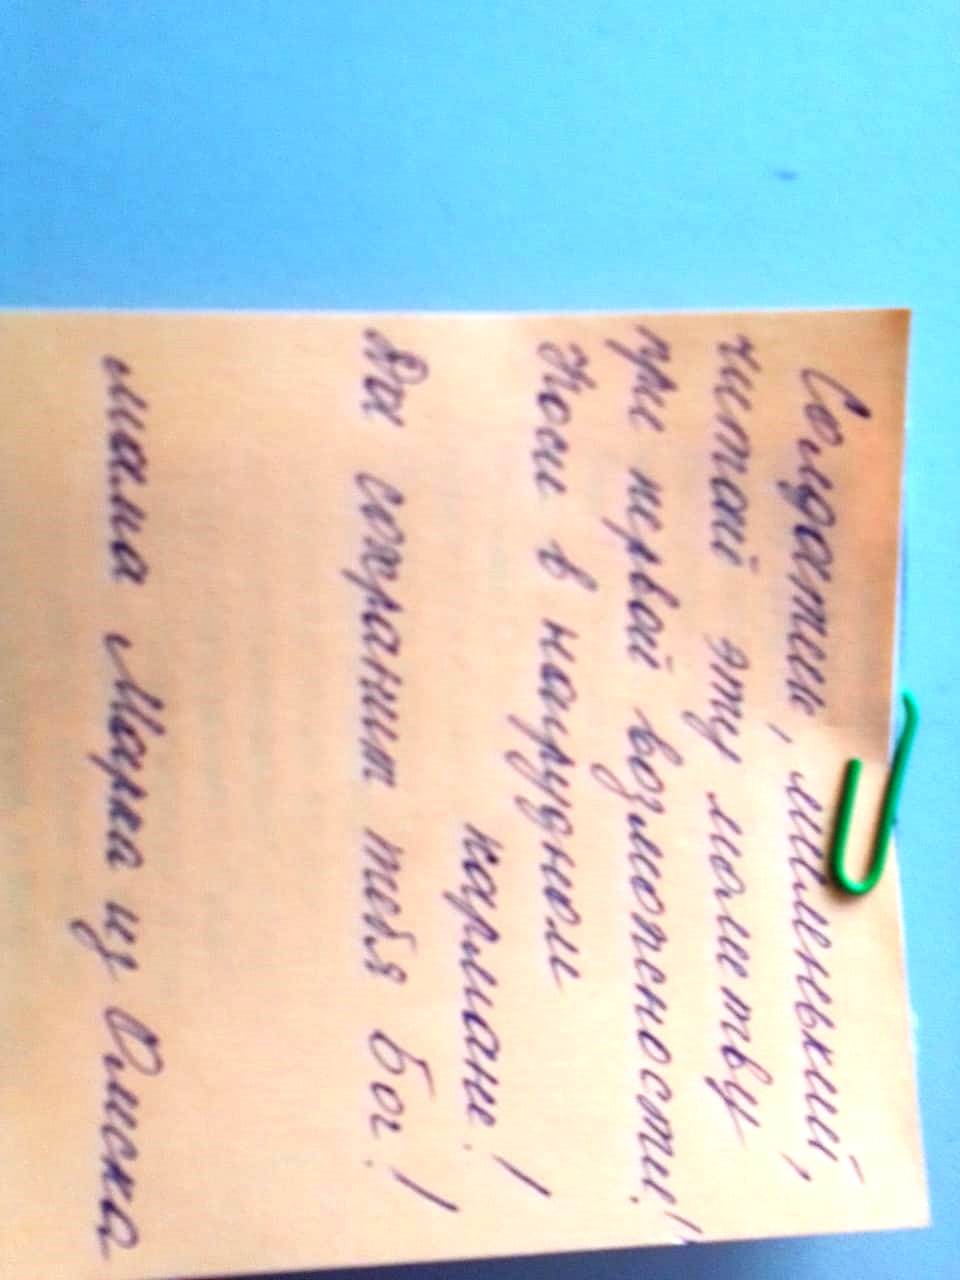 Солдатик, миленький,
читай эту молитву
при первой возможности!
Носи в нагрудном
кармане!
Да сохранит тебя Бог!
мама Марка из Омска